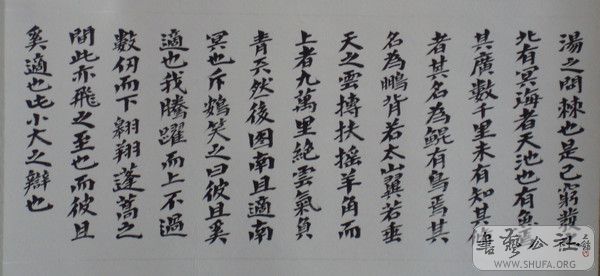 湯之問棘也是已窮髮之
北有冥海者天池也有魚焉
其廣數千里未有知其修
者其名為鯤有鳥焉其
名為鵬背若太山翼若垂
天之雲摶扶搖羊角而
上者九萬里絕雲氣負
青天然後圖南且適南
冥也斥鴳笑之曰彼且奚
適也我騰躍而上不過
數仞而下翱翔蓬蒿之
間此亦飛之至也而彼且
奚適也此小大之辯也
書藝公社
WWW.SHUFA.ORG